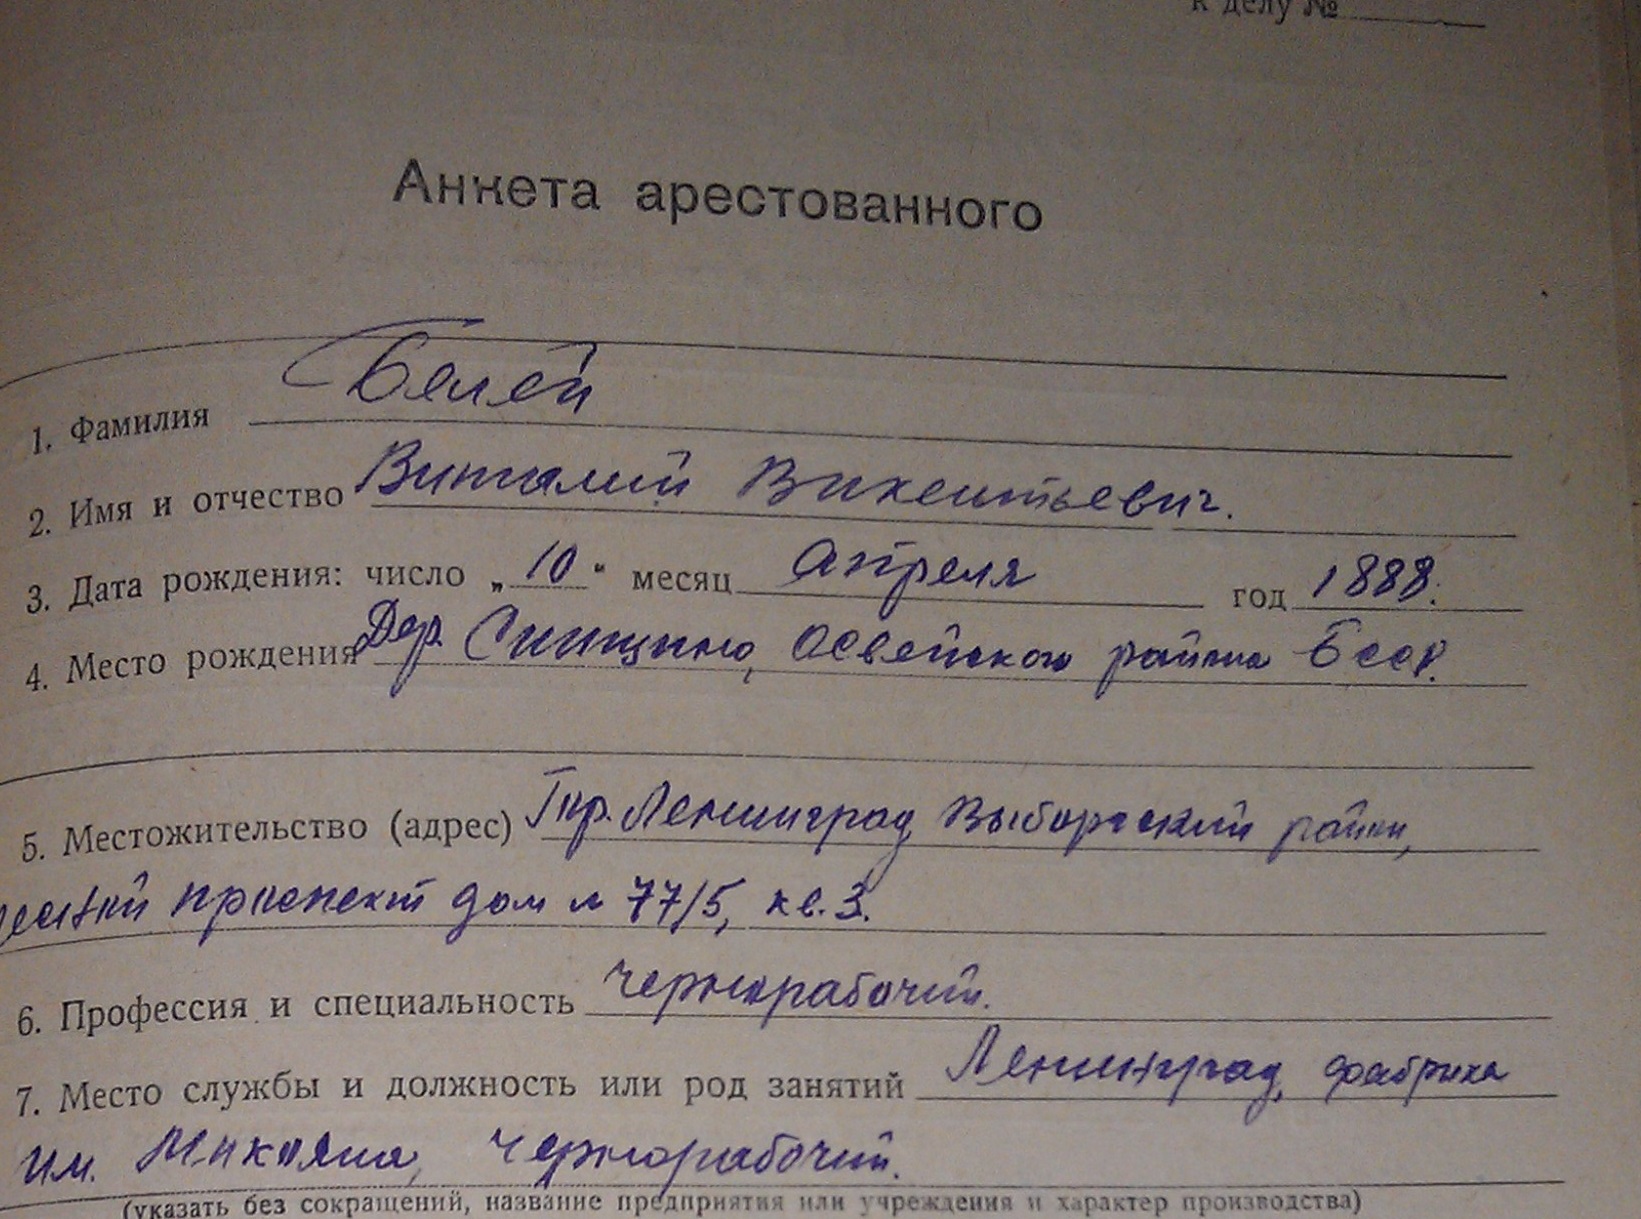 к делу №
Анкета арестованного
1. Фамилия Белей
2. Имя и отчество Виталий Викентьевич.
3. Дата рождения: число „10“ месяц Апреля год 1888.
4. Место рождения Дер. Освейского района БССР.
5. Местожительство (адрес) Гор. Ленинград, Выборгский район,
проспект дом № 77/5, кв. 3.
6. Профессия и специальность Чернорабочий.
7. Место службы и должность или род занятий Ленинград, фабрика
им. Микояна, Чернорабочий.
(указать без сокращений, название предприятия или учреждения и характер производства)